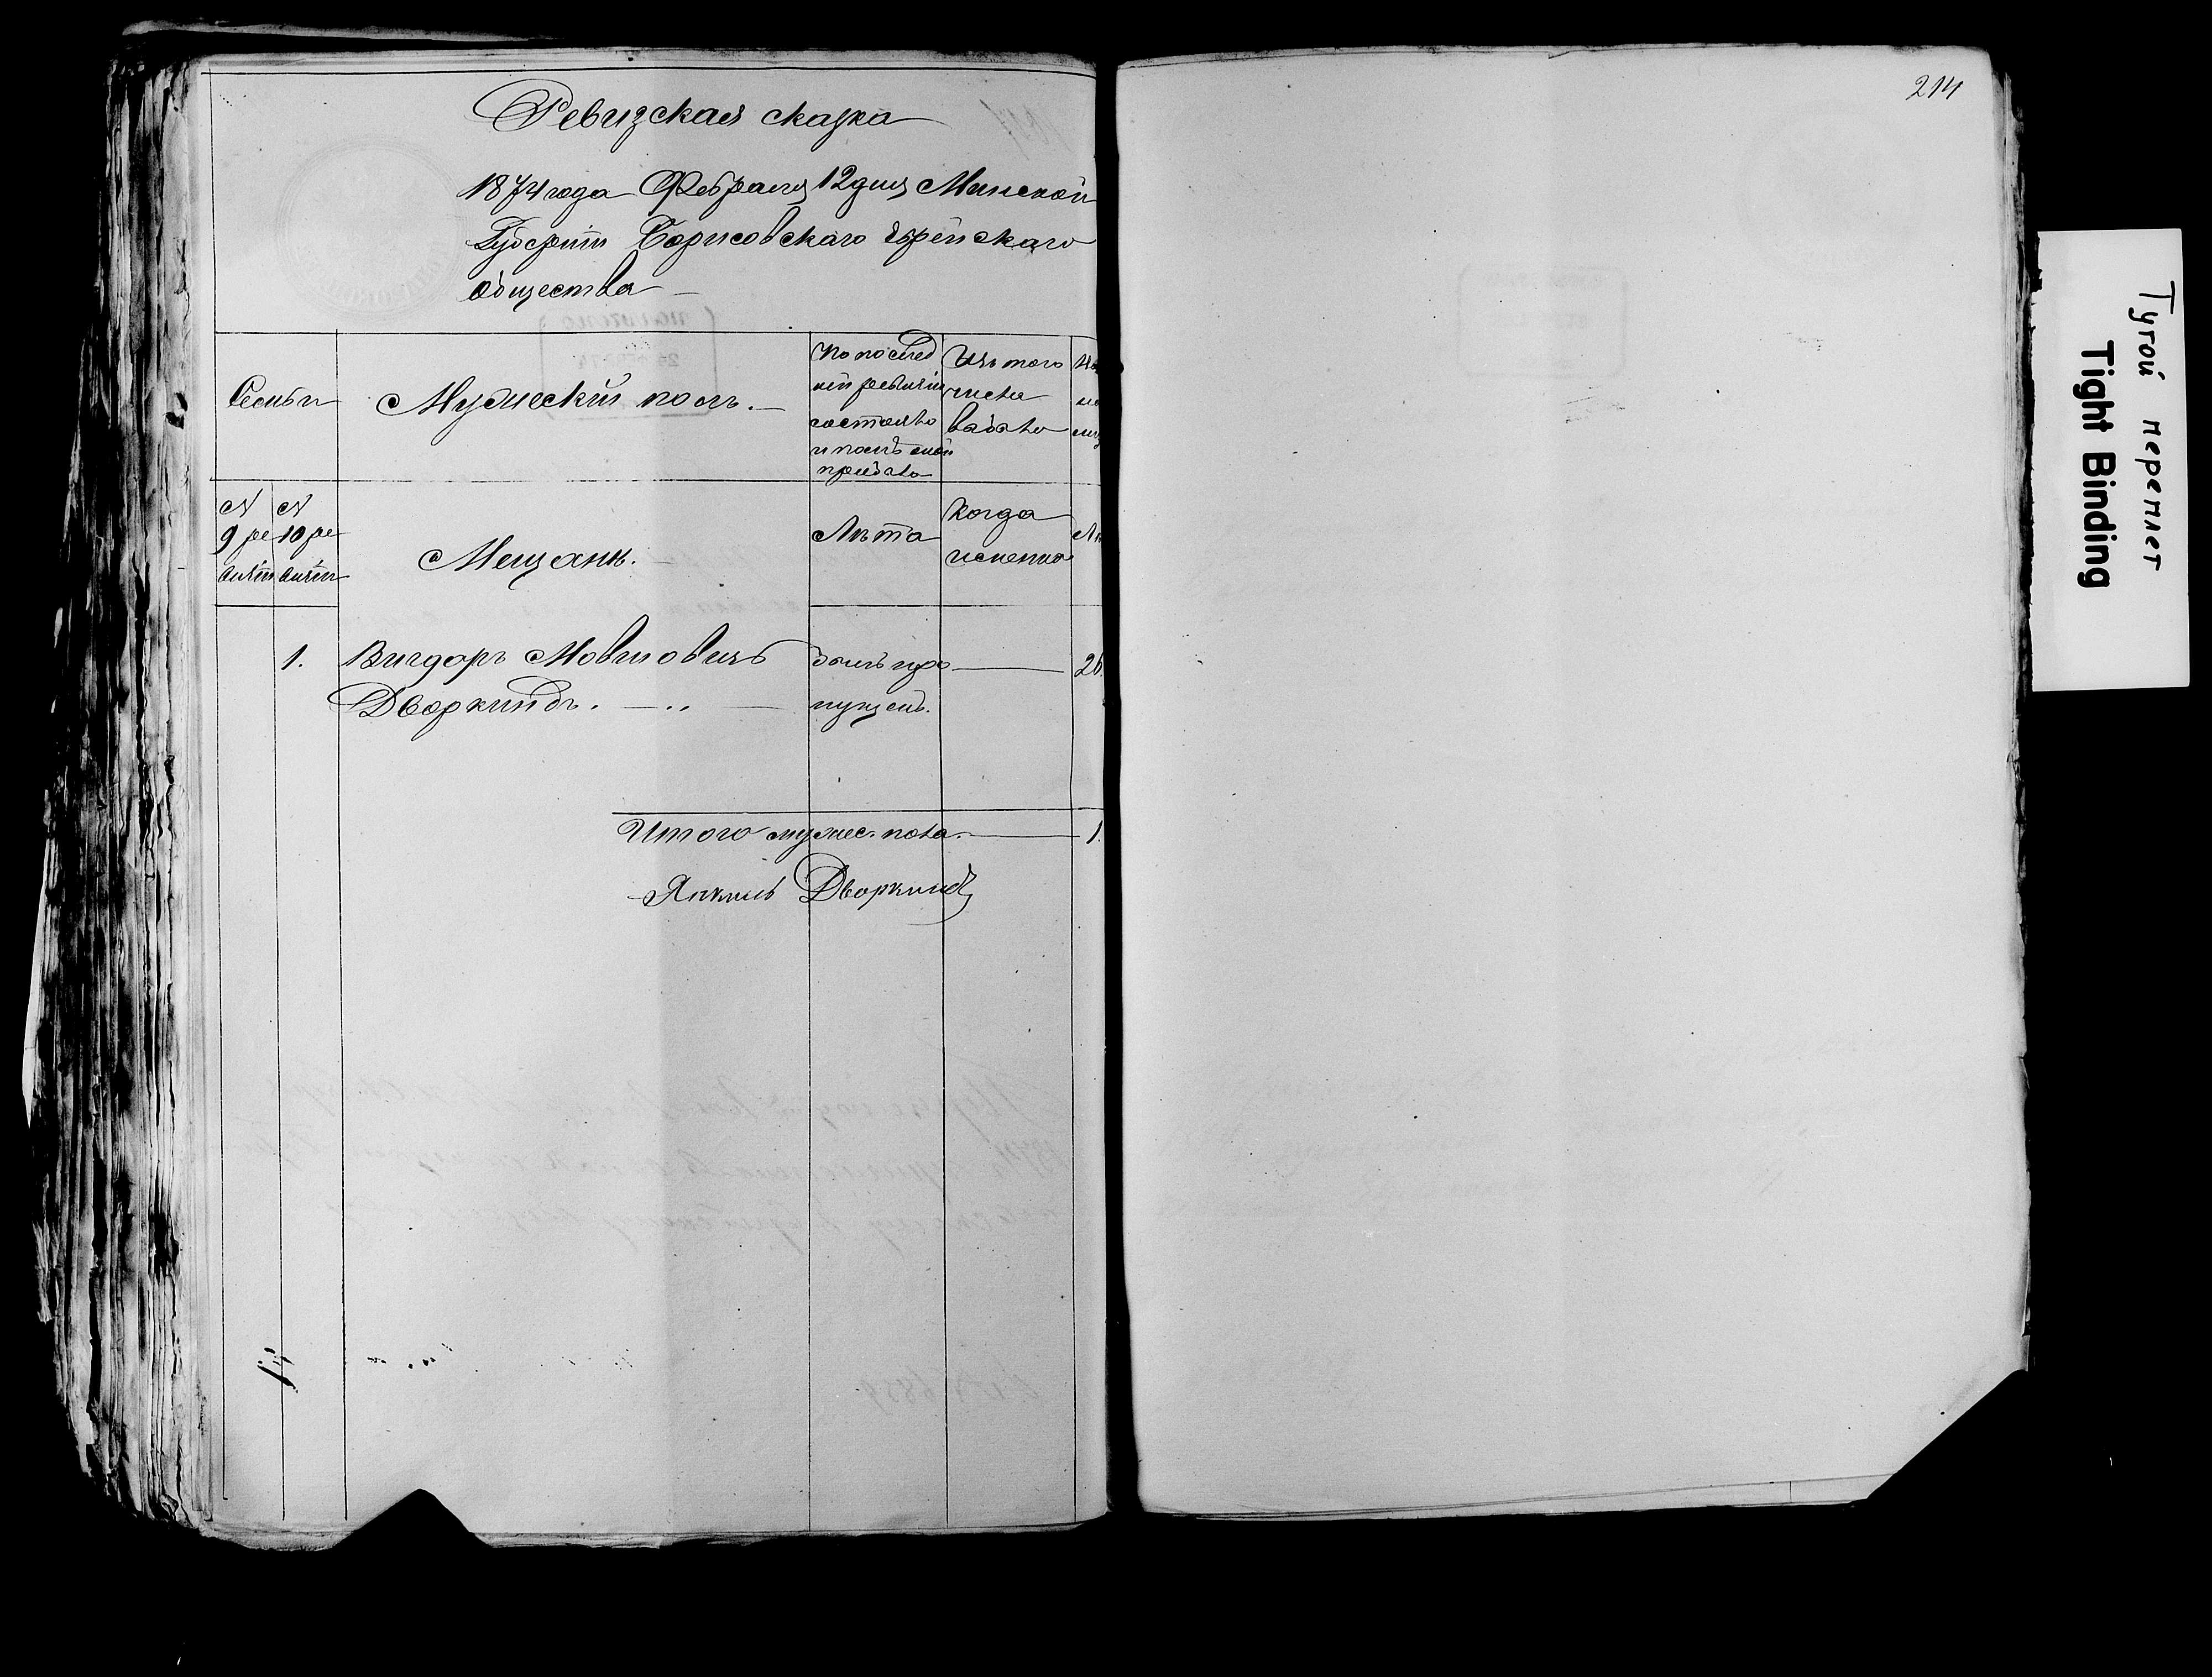 Ревизская сказка
1874 года Февраля 12 дня Минской
Губернiи Борисовскаго Еврейскаго
Общества
Семьи
Мужескiй полъ.
По послед
ней ревизiи
состояло
и послѣ оной
прибыло
Изъ того
числа
выбыло
N
9 ре
визiи
N
10 ре
визiи
Мещане.
Лѣта
Когда
именно
1. Вигдоръ Мовшовичъ
Дворкиндъ.
былъ про
пущенъ.
26.
Итого мужес. пола. 1.
Янкель Дворкиндъ
214
Тугой переплет
Tight Binding